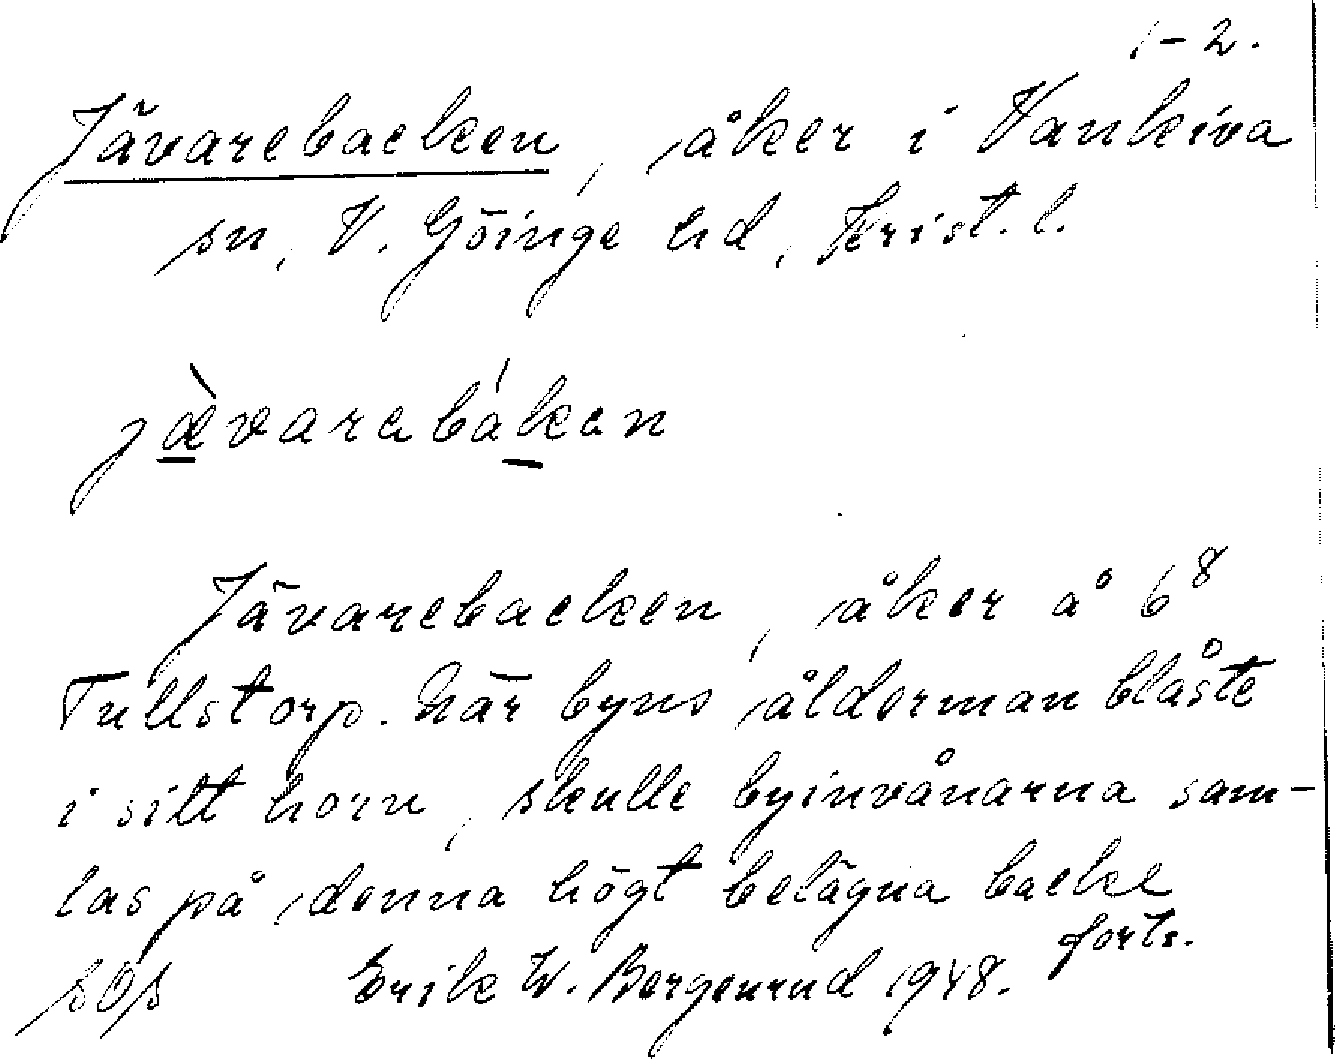 1-2.
Jävarebacken, åker i Vankiva
sn, V. Göinge hd, Krist. l.
jævarabákan
Jävarebacken, åker å 6⁸
Tullstorp. När byns ålderman blåste
i sitt horn, skulle byinvånarna sam-
las på denna högt belägna backe
forts.
Erik W. Bergenrud 1948.